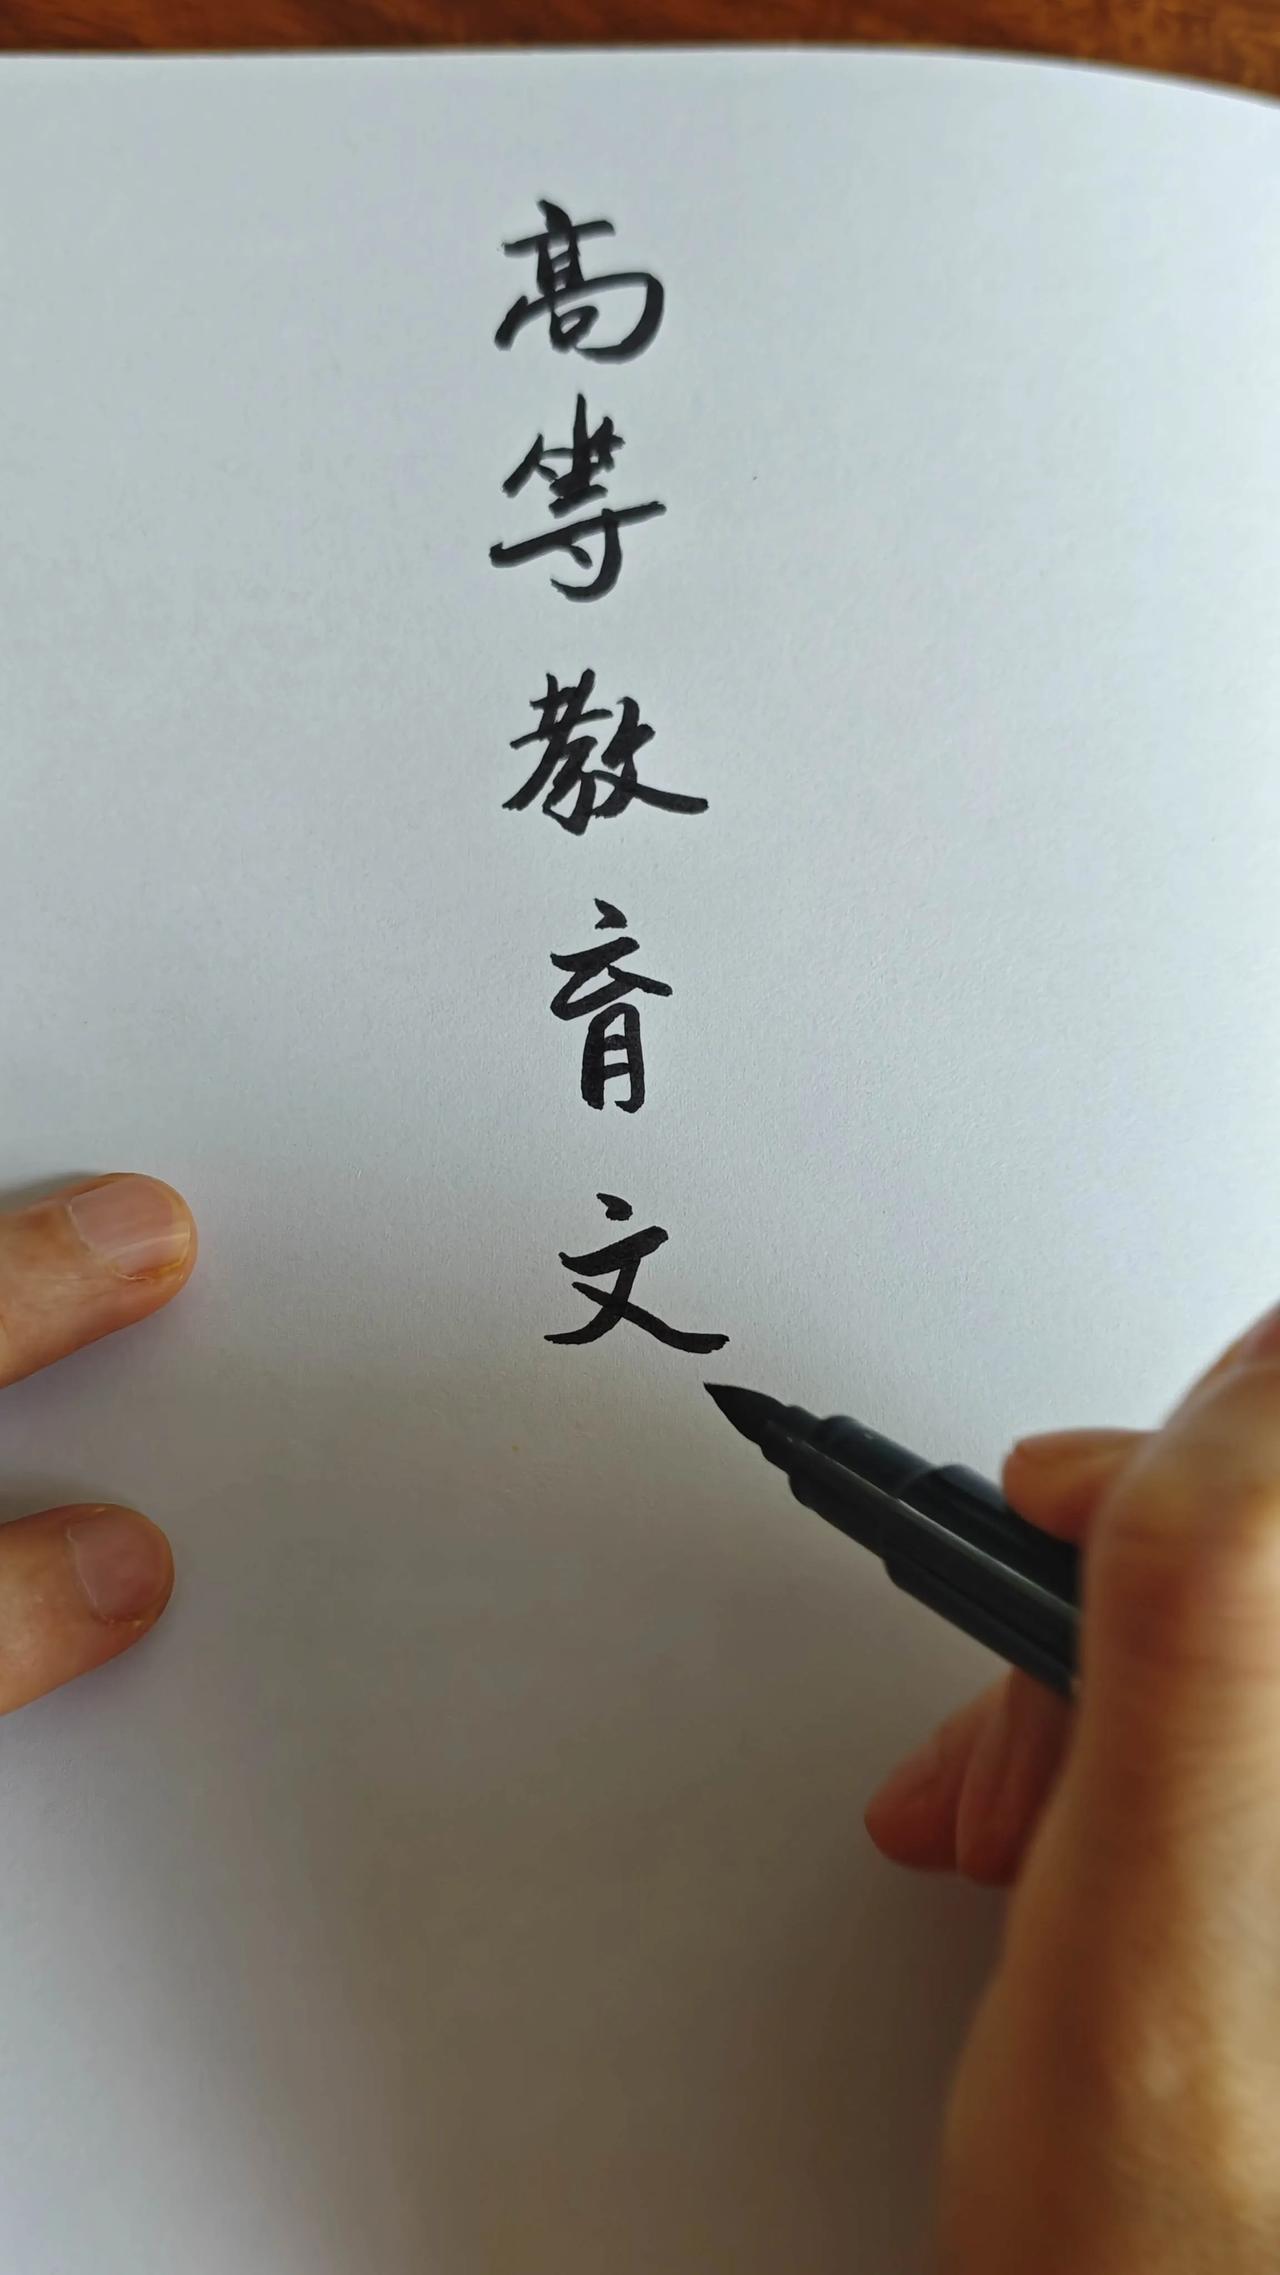 高等教育文